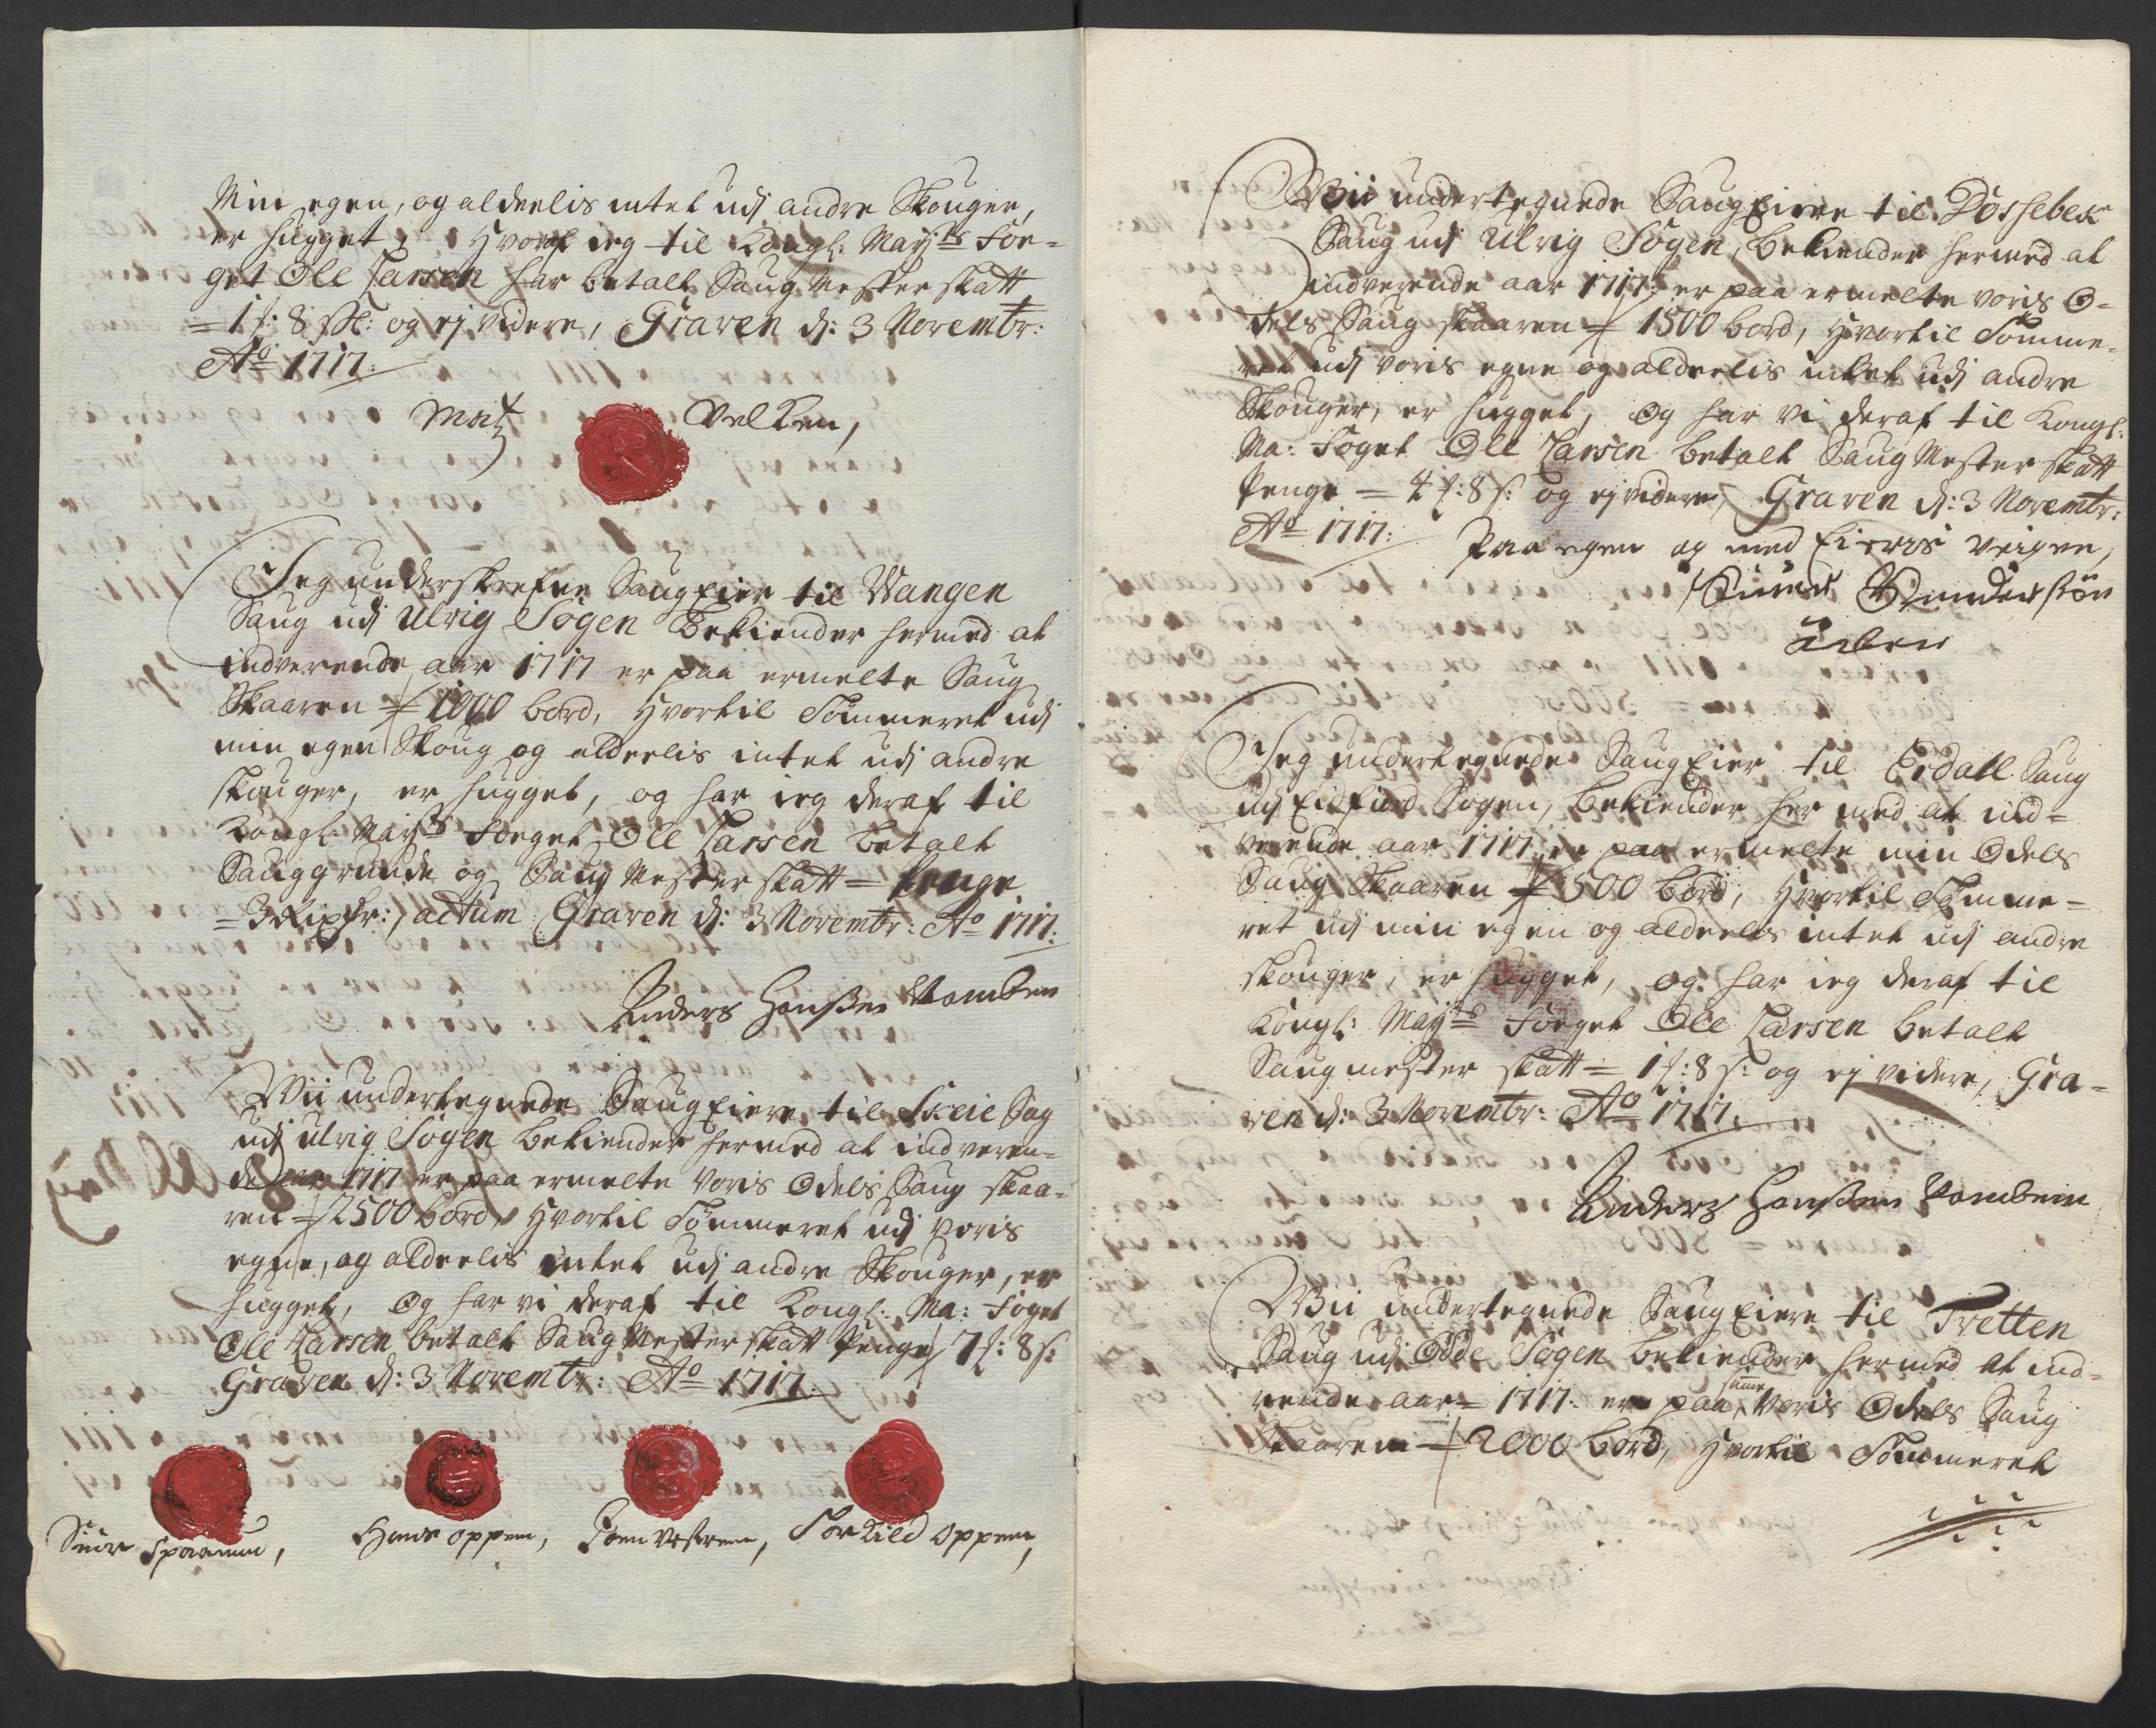 Min egen, og aldeelis intet udj andre Skouger,
er hugget, Hvoraf ieg til Kongl: Mayts Foe-
get Ole Larsen har betalt Saug Mester skatt
= 1 f: 8 sk: og ej videre, Graven d: 3 Novembr:
Ao 1717:
Matz Velken,
Jeg underskrefne SaugEier til Vangen
Saug udj Ulvig Sogen Bekiender hermed at
indverende aar 1717 er paa ermelte Saug
Skaaren = 1000 bord, Hvortil Tømmeret udj
min egen Skoug og aldeelis intet udj andre
skouger, er hugget, og har ieg deraf til
Kongl: Mayts Foeget Ole Larsen betalt
Sauggrunde og Saug Mester skatt = Penge
= 3 Rixdr:, actum Graven d: 3 Novembr: Ao 1717:
Anders Hansßen Vamben
Wii undertegnede SaugEiere til Skeie Sag
udj Ulvig Sogen bekiender hermed at indveren-
de aar 1717 er paa ermelte voris Odels Saug skaa-
ren = 2500 bord, Hvortil Tømmeret udj voris
egne, og aldeelis intet udj andre Skouger, er
hugget, Og har vi deraf til Kongl: Ma: Foget
Ole Larsen betalt Saug Mester skatt Penge 7 f: 8 s:
Graven d: 3 Novembr: Ao 1717.
Siur Spaanum, Hans oppem, Joen Vestrem, Torkild oppem,
Wii undertegnede SaugEiere til Døssebek
Saug udj Ulvig Sogen, bekiender hermed at
indverende aar 1717: er paa ermelte voris O-
dels Saug skaaren = 1500 bord, Hvortil Tømme-
ret udj voris egne og aldeelis intet udj andre
Skouger, er hugget, Og har vi deraf til Kongl:
Ma: Foget Ole Larsen betalt Saug Mester skatt
Penge = 4 f: 8 s: og ej videre, Graven d: 3 Novembr:
Ao 1717: Paa egen og med Eieres veigne,
Siurd
Jeg undertegnede SaugEier til Erdall Saug
udj Eidfiord Sogen, bekiender her med at ind-
verende aar 1717 er paa ermelte min Odels
Saug Skaaren = 500 bord, Hvortil Tømme-
ret udj min egen og aldeelis intet udj andre
skouger, er hugget, og har ieg deraf til
Kongl: Mayts Foeget Ole Larsen betalt
Saugmester skatt = 1 f: 8 s: og ej videre, Gra-
ven d: 3 Novembr: Ao 1717.
Anders Hansßen Vambem
Wii undertegnede SaugEiere til Tretten
Saug udj Odde Sogen bekiender hermed at ind-
rende aar = 1717. er paa same voris Odels Saug
Skaaren = 2000 bord, Hvortil Tømmeret